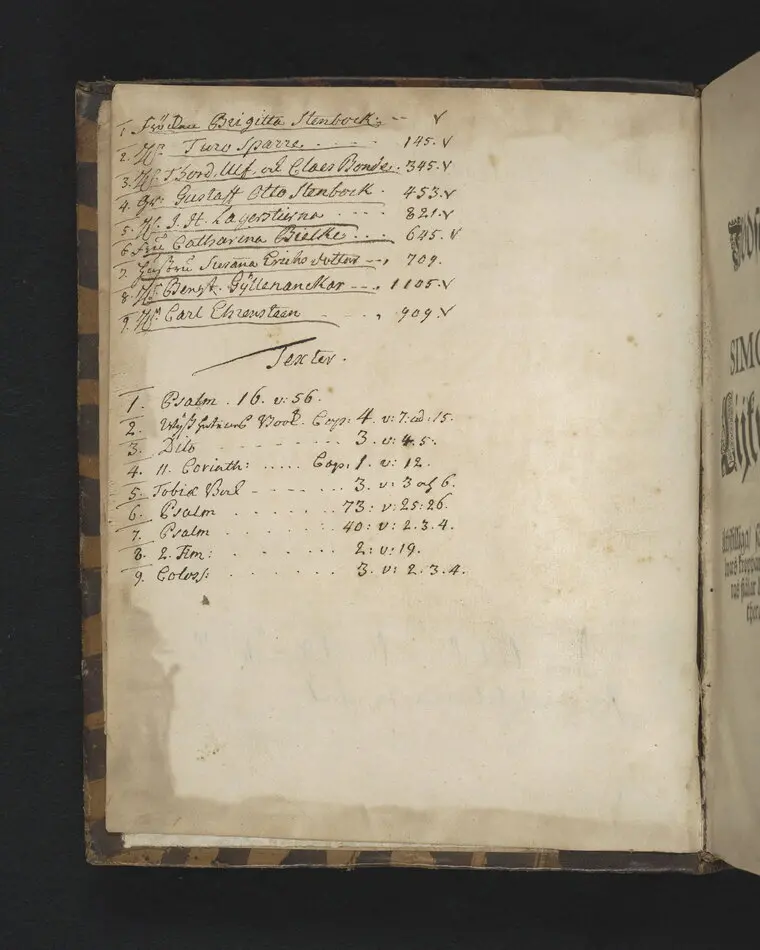 1. Brigitta Stenbock. -- V
2. Hr. Turo Sparre. . . . . 145. V
3. Hr. Thord, Ulf, och Claes Bonde. . 345. V
4. Gr: Gustaff Otto Stenbock . 453. V
5. Hr. J. H. Lagerstierna . . . . 821. V
6 Fru Catharina Bielke . . . 645. V
7. Susana Erichs dotter --, 709.
8. Hr Bengt Gÿllenanckar --. , 1105. V
9. Hr. Carl Ehrensteen - . , 909. V
Texter.
1. Psalm . 16. v: 56.
2. Book. Cap: 4. v: 7: 15.
3. Dito - - - - - - - 3. v: 4. 5.
4. II. Corinth: ..... Cap: 1. v: 12.
5. Tobiæ - - - - - 3. v: 3 och 6.
6. Psalm . . . . . . 73: v: 25: 26.
7. Psalm . . . . . . 40: v: 2. 3. 4.
8. 2. Tim: . . . . . . 2: v: 19.
9. Coloss: . . . . . . 3. v: 2. 3. 4.
SIMO